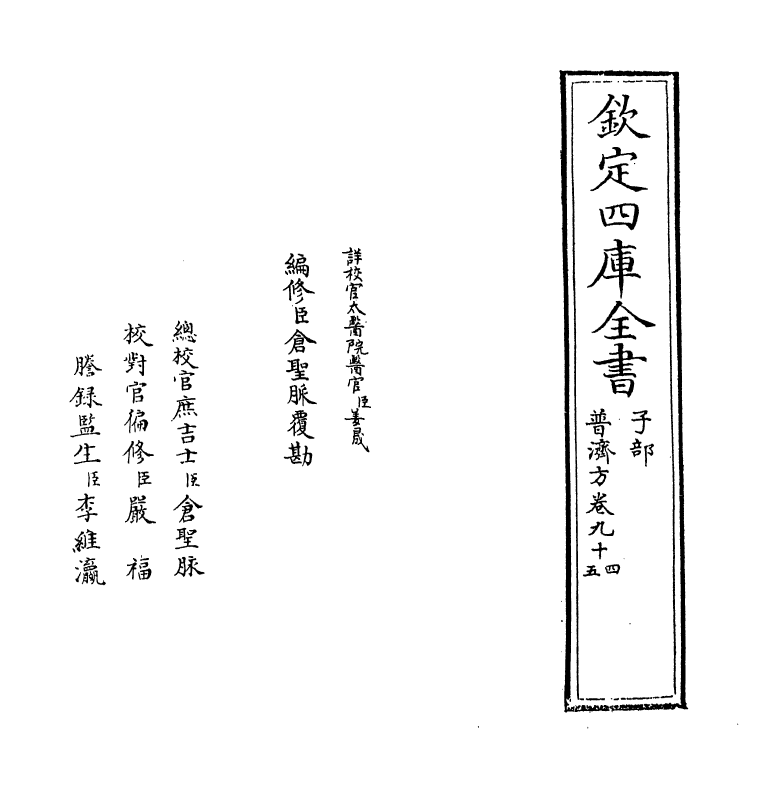 欽定四庫全書
子部
普濟方卷九十四五
詳校官太醫院醫官臣姜晟
編修臣倉聖脈覆勘
總校官庶吉士臣倉聖脈
校對官編修臣嚴福
謄錄監生臣李維瀛